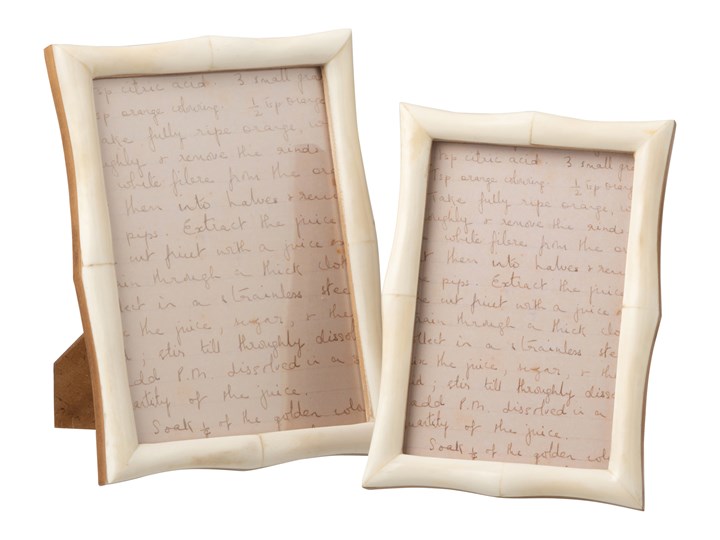 sp citric acid. 3 small
sp orange coloring. ½ tsp orange
take fully ripe orange, w
oughly & remove the rinds
white fibre from the or
them into halves & remo
pips. Extract the juice
cut fruit with a juice
through a thick clot
lect in a stainless stee
the juice, sugar, & the
; stir till throughly dissol
add P.M. dissolved in a
antity of the juice.
Soak ½ of the golden colo
sp citric acid. 3 small
tsp orange coloring. ½ tsp oran
take fully ripe orange, w
oughly & remove the rinds
white fibre from the or
t them into halves & remo
pips. Extract the juic
cut fruit with a juice
through a thick clo
lect in a stainless ste
the juice, sugar, & th
d ; stir till throughly disso
add P.M. dissolved in a
uantity of the juice.
Soak ½ of the golden col